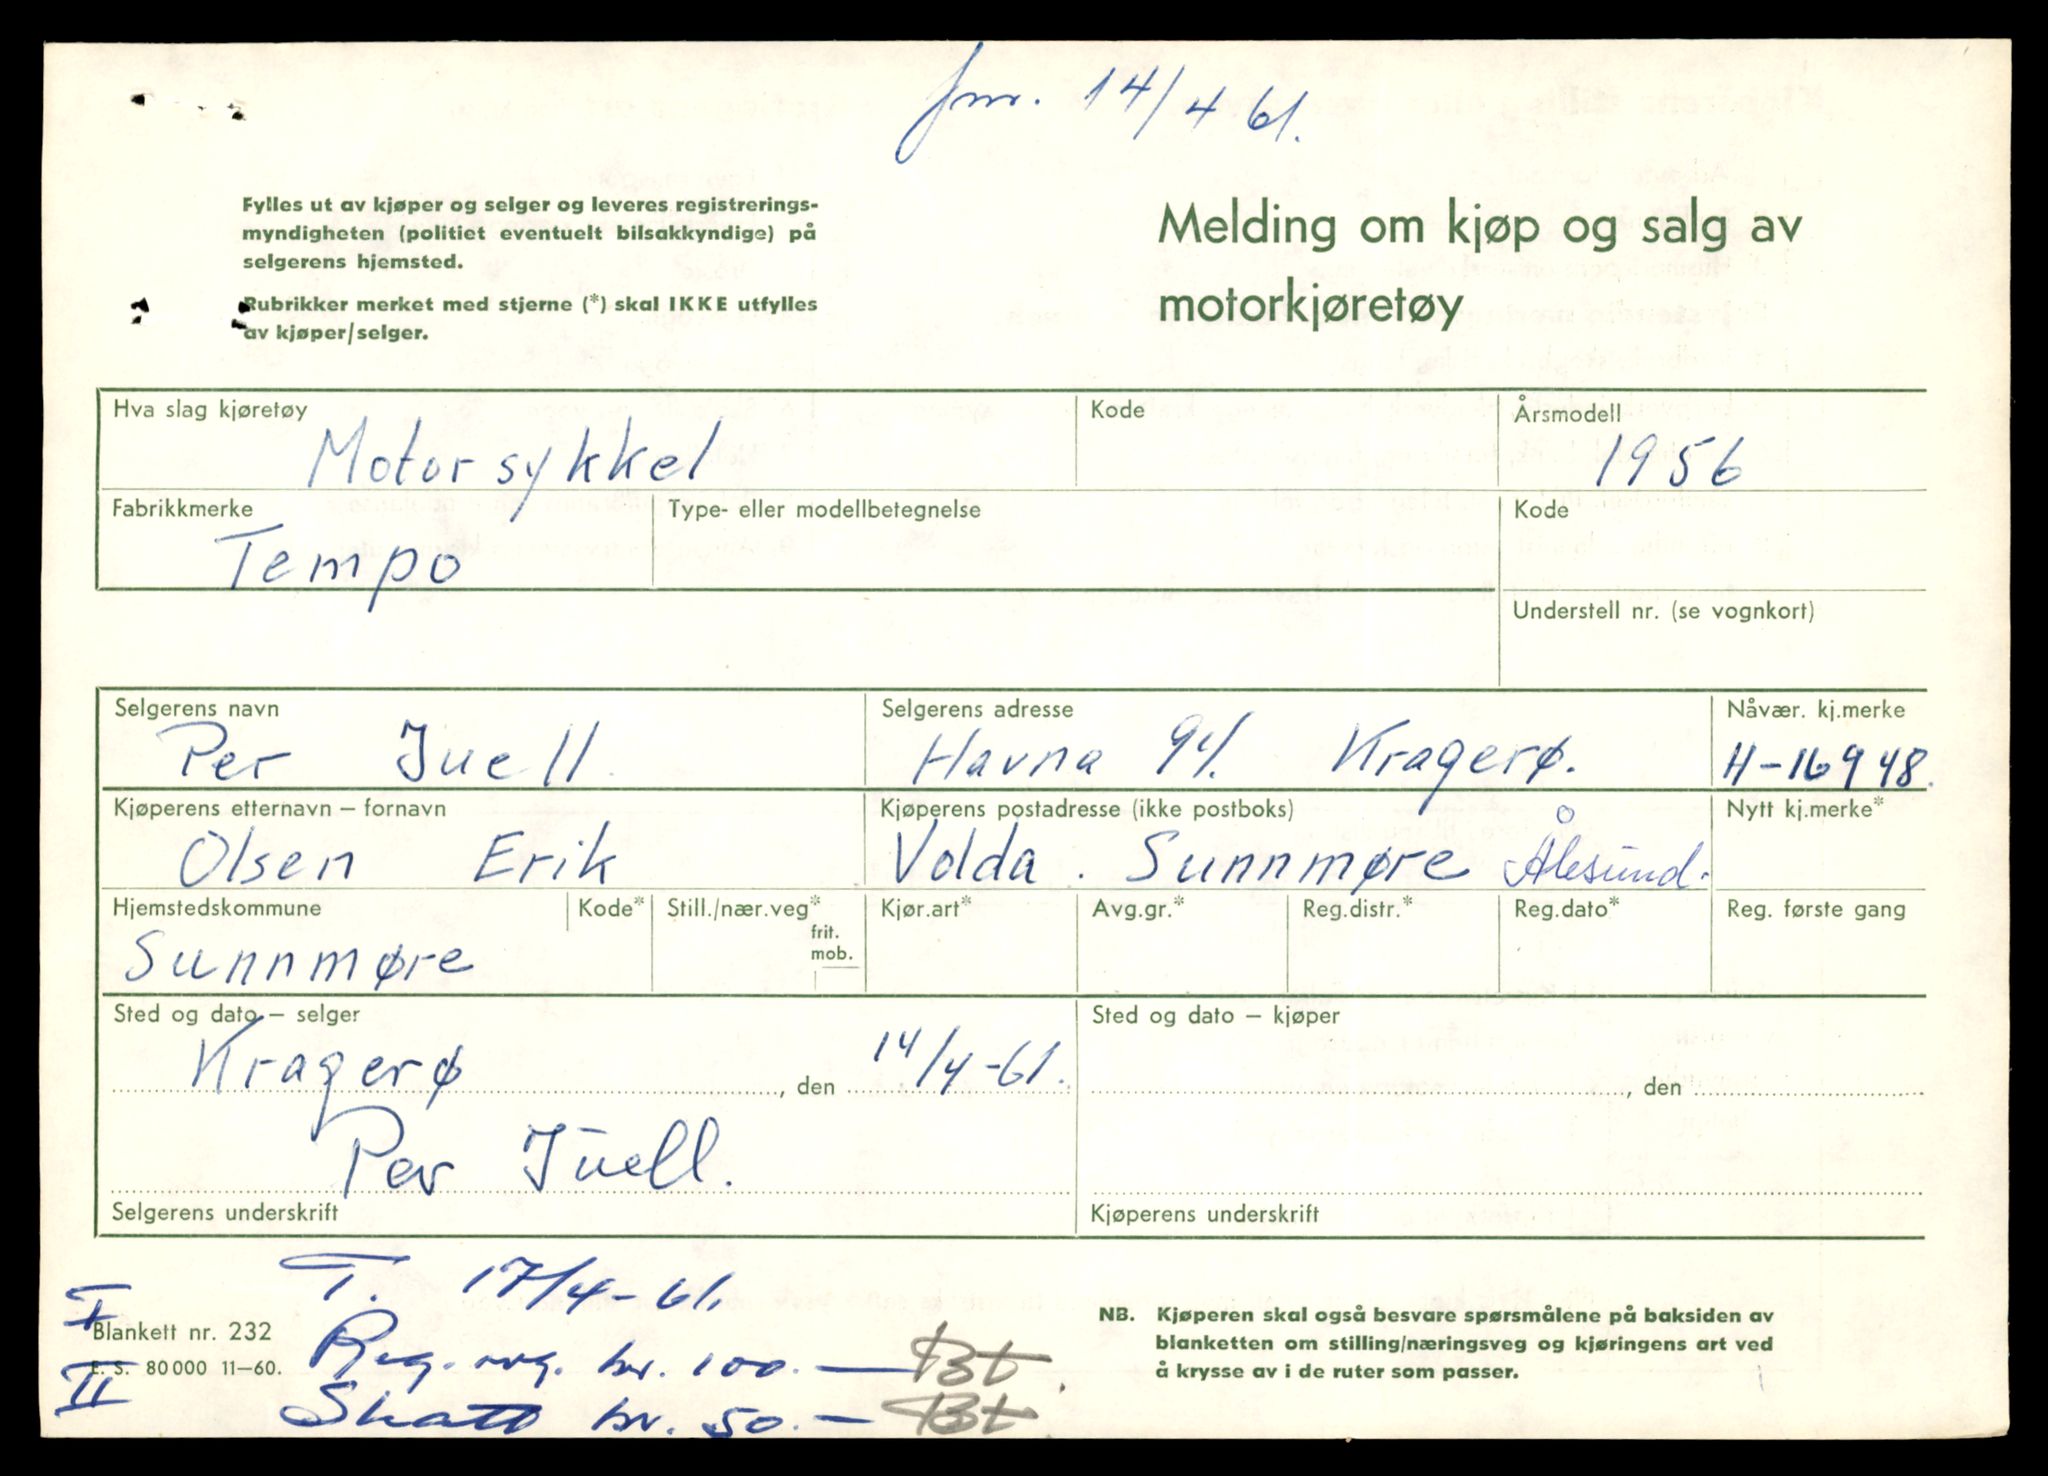 jnr. 14/4 61.
Fylles ut av kjøper og selger og leveres registrerings-
myndigheten (politiet eventuelt bilsakkyndige) på
selgerens hjemsted.
Rubrikker merket med stjerne (*) skal IKKE utfylles
av kjøper/selger.
Melding om kjøp og salg av
motorkjøretøy
Hva slag kjøretøy Kode Årsmodell
Motorsykkel 1956
Fabrikkmerke Type- eller modellbetegnelse Kode
Tempo
Understell nr. (se vognkort)
Selgerens navn Selgerens adresse Nåvær. kj.merke
Per Juell Havna Kragerø. H-16948.
Kjøperens etternavn – fornavn Kjøperens postadresse (ikke postboks) Nytt kj.merke*
Olsen Erik Volda. Sunnmøre Ålesund.
Hjemstedskommune Kode* Still./nær.veg* frit. mob. Kjør.art* Avg.gr.* Reg.distr.* Reg.dato* Reg. første gang
Sunnmøre
Sted og dato – selger Sted og dato – kjøper
Kragerø, den 14/4-61. , den
Per Juell.
Selgerens underskrift Kjøperens underskrift
T. 17/4-61.
I
Blankett nr. 232
E. S. 80 000 11–60.
Reg. avg. kr. 100.— Bt.
II
Skatt kr. 50.— Bt
NB. Kjøperen skal også besvare spørsmålene på baksiden av
blanketten om stilling/næringsveg og kjøringens art ved
å krysse av i de ruter som passer.